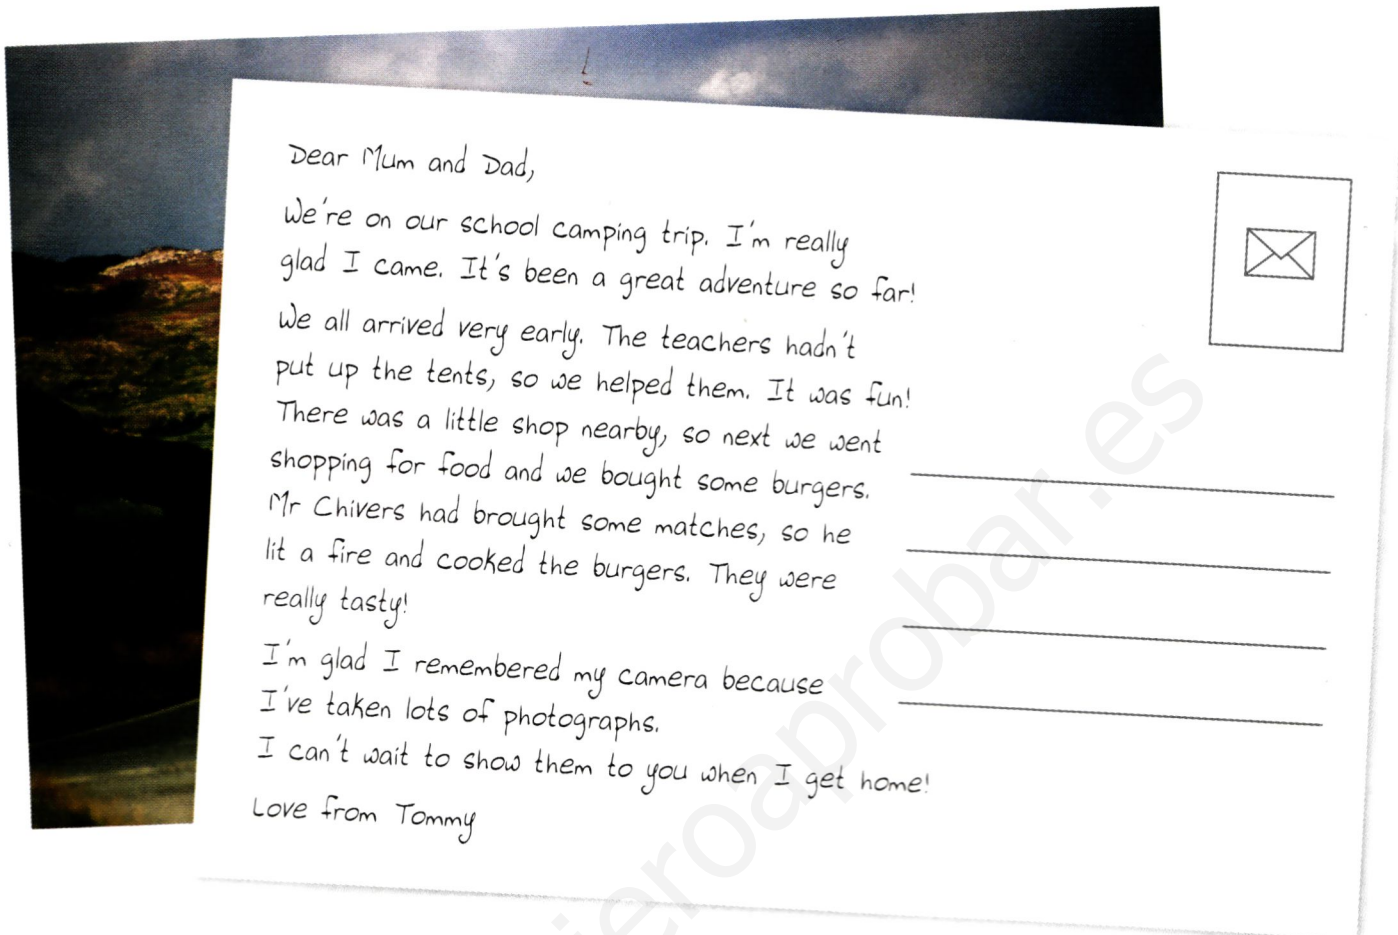 Dear Mum and Dad,
We're on our school camping trip. I'm really
glad I came. It's been a great adventure so far!
We all arrived very early. The teachers hadn't
put up the tents, so we helped them. It was fun!
There was a little shop nearby, so next we went
shopping for food and we bought some burgers.
Mr Chivers had brought some matches, so he
lit a fire and cooked the burgers. They were
really tasty!
I'm glad I remembered my camera because
I've taken lots of photographs.
I can't wait to show them to you when I get home!
Love from Tommy
ieroaprobar.es